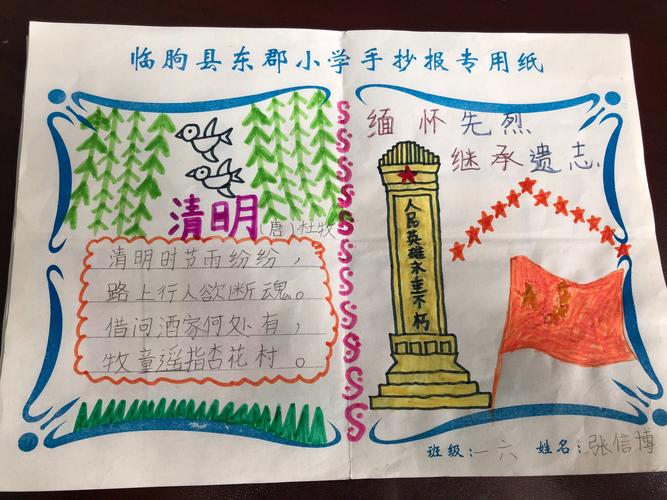 临朐县东郡小学手抄报专用纸
清明
(唐)杜牧
清明时节雨纷纷，
路上行人欲断魂。
借问酒家何处有，
牧童遥指杏花村。
缅怀先烈
继承遗志
人民英雄永垂不朽
班级：一六 姓名：张信博